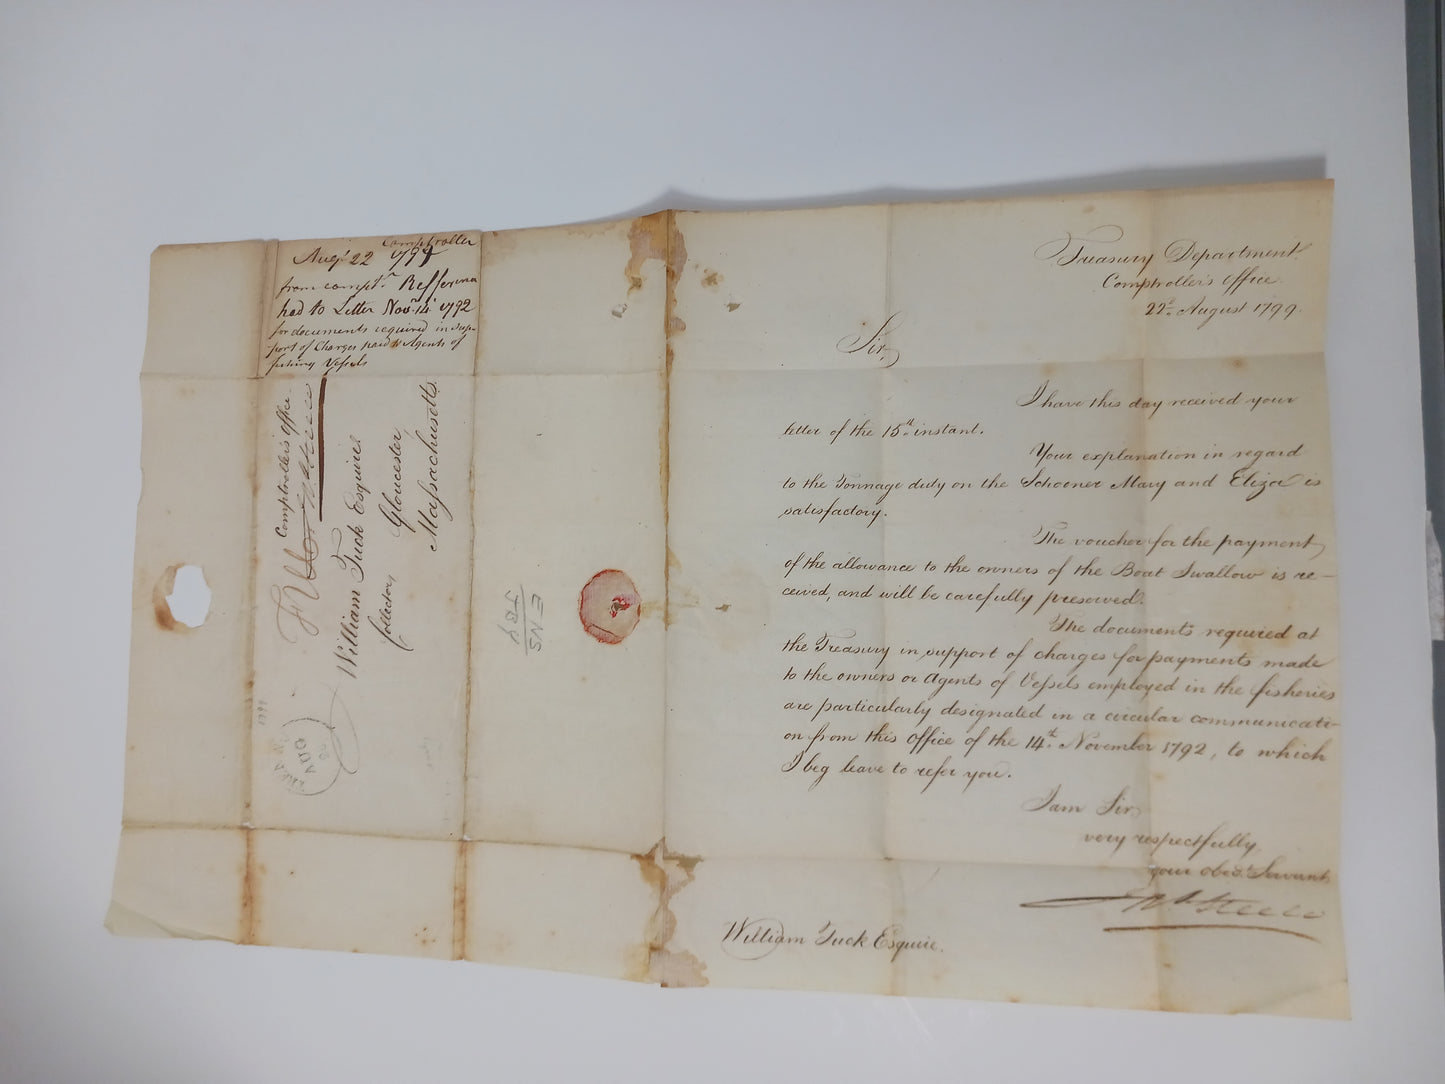 Treasury Department.
Comptroller's Office
22d. August 1799.
Sir,
I have this day received your
letter of the 15th. instant.
Your explanation in regard
to the Tonnage duty on the Schooner Mary and Eliza is
satisfactory.
The voucher for the payment
of the allowance to the owners of the Boat Swallow is re-
ceived, and will be carefully preserved.
The documents required at
the Treasury in support of charges for payments made
to the owners or Agents of Vessels employed in the fisheries
are particularly designated in a circular communicati-
on from this Office of the 14th. November 1792, to which
I beg leave to refer you.
I am Sir,
very respectfully,
your obedt. Servant
Jno. Steele
William Tuck Esquire.
Comptroller
Augt 22 1799
from compt.r Refference
had to Letter Novr. 14 1792
for documents required in sup-
port of Charges paid to Agents of
fishing Vessels
Comptroller's Office.
Free
Jno. Steele
William Tuck Esquire
Collector
Gloucester
Massachusetts.
AUG
1799
ENS